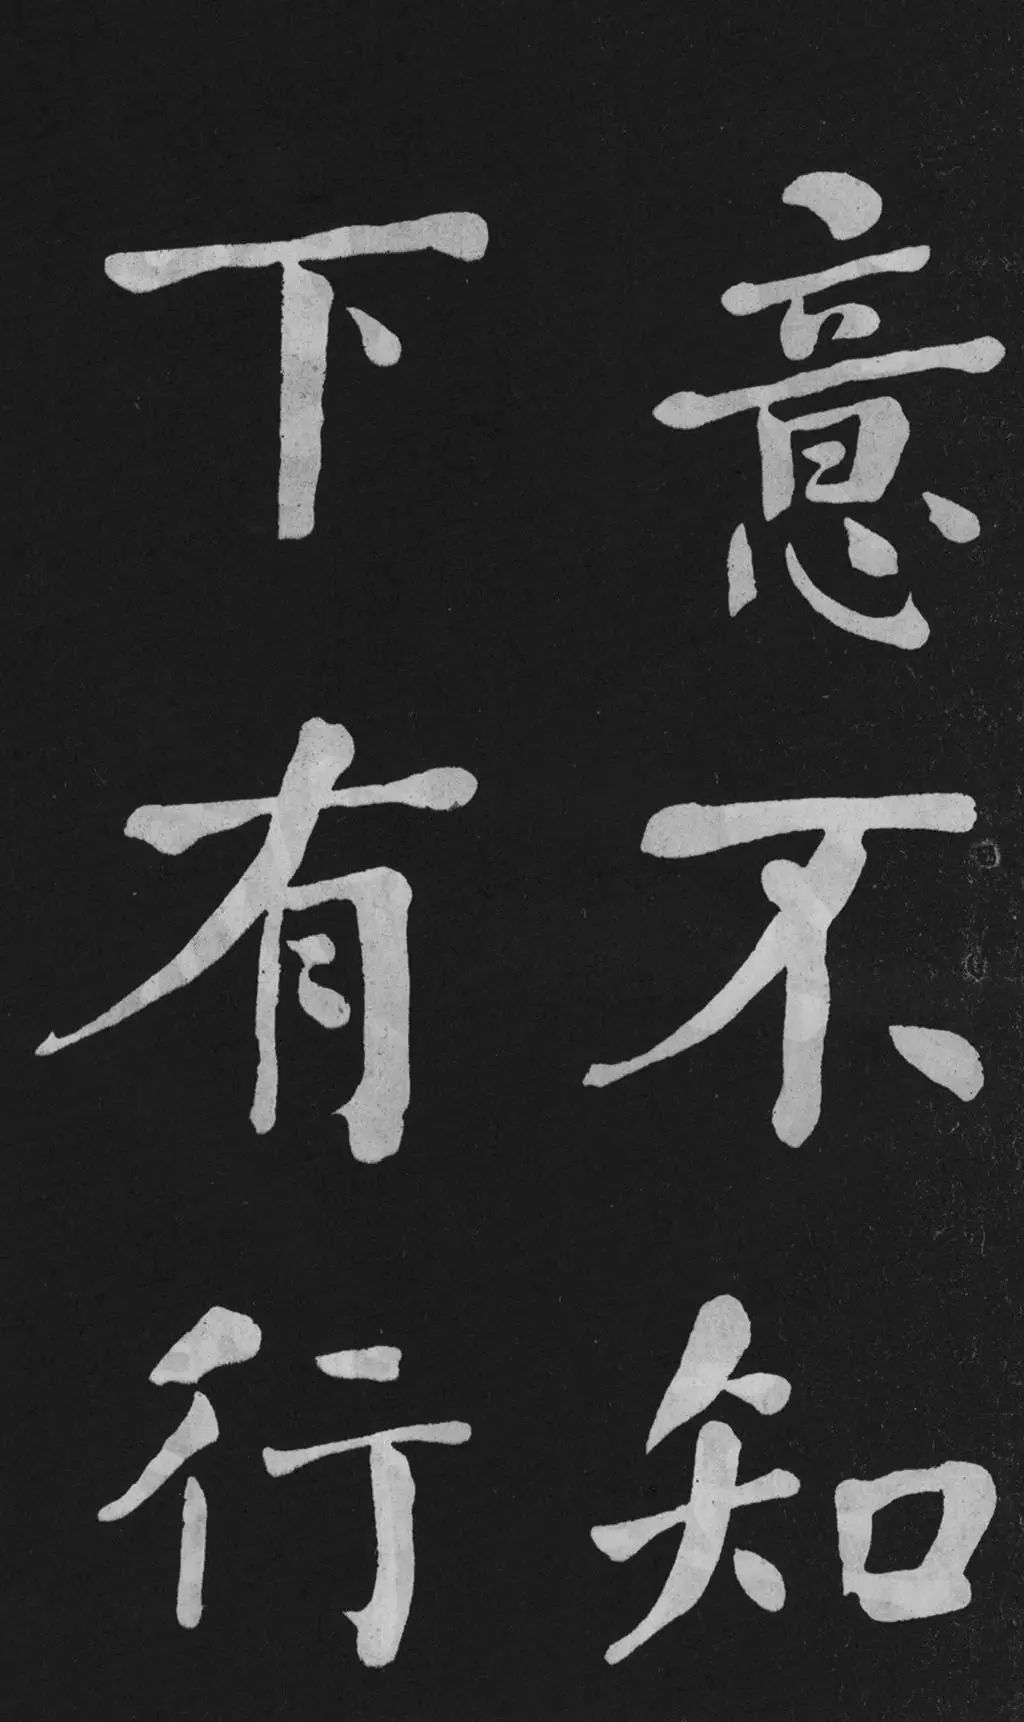 意不知
下有行